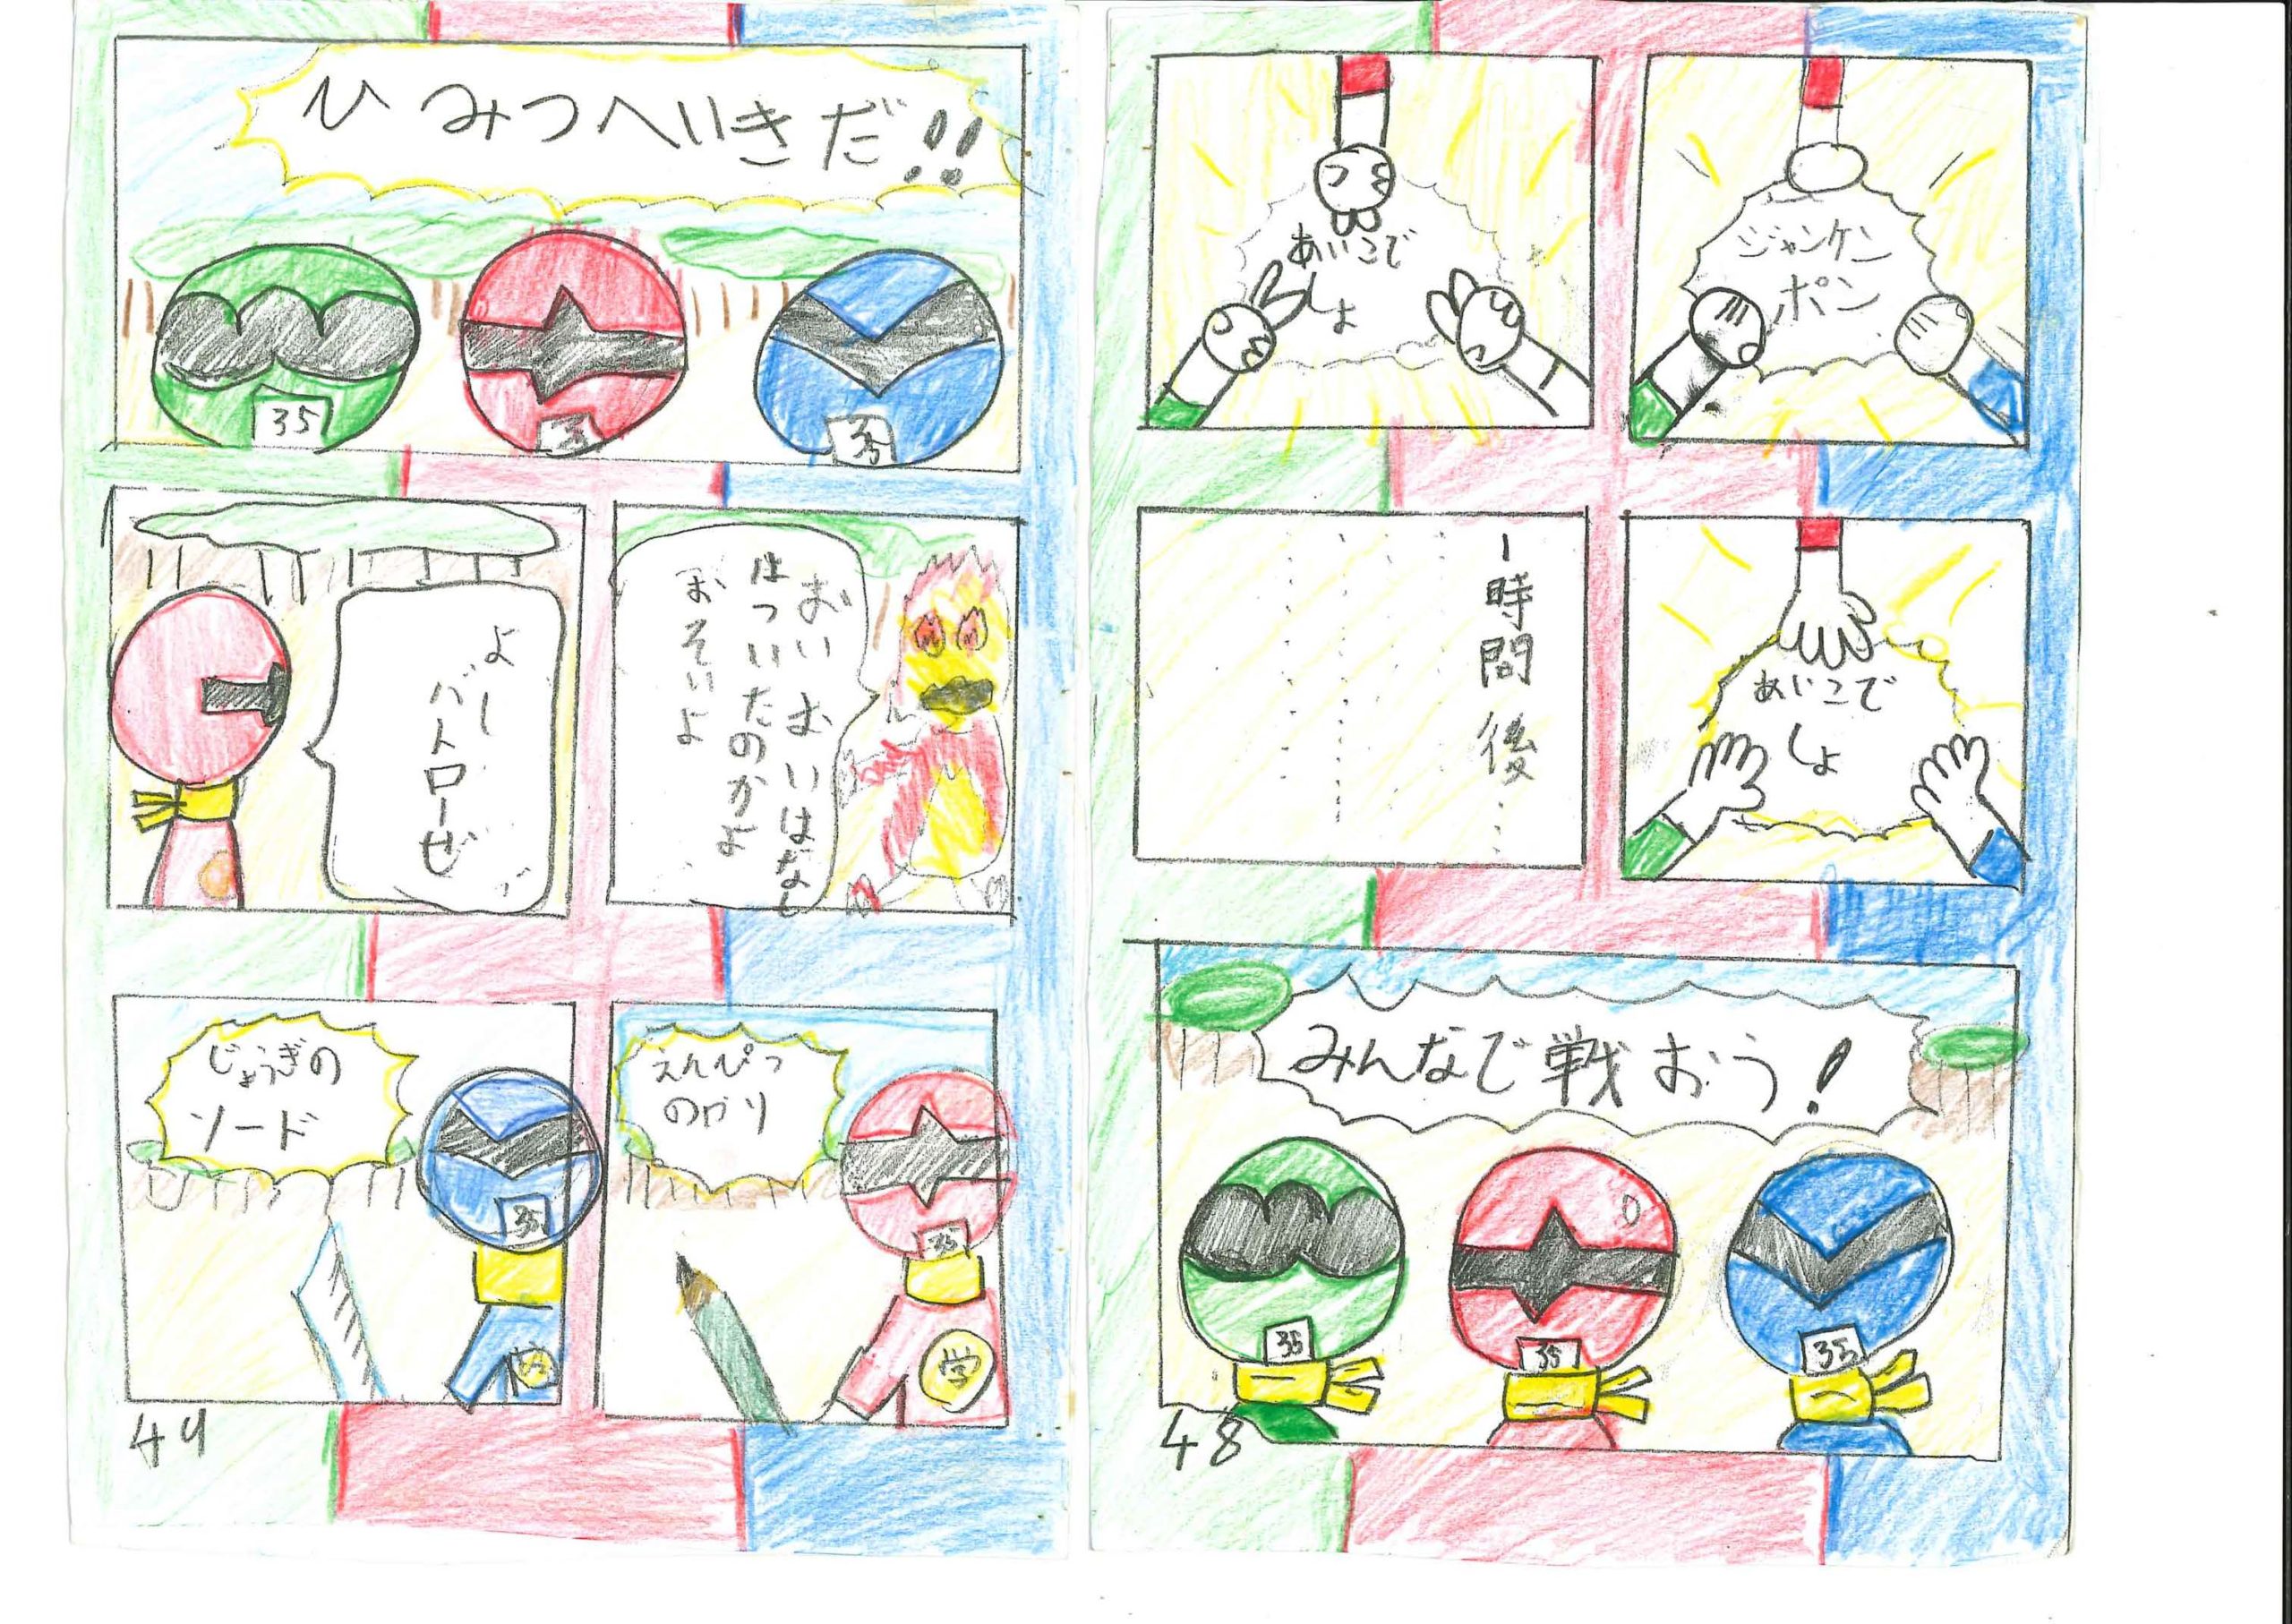 ジャンケン
ポン
あいこで
しょ
あいこで
しょ
一時間後…
みんなで戦おう!
35
35
35
48
ひみつへいきだ!!
35
35
おいおいはなし
はついたのかよ
おそいよ
よー
バトローぜ
えんぴつ
のやり
35
学
じょうぎの
ソード
35
49